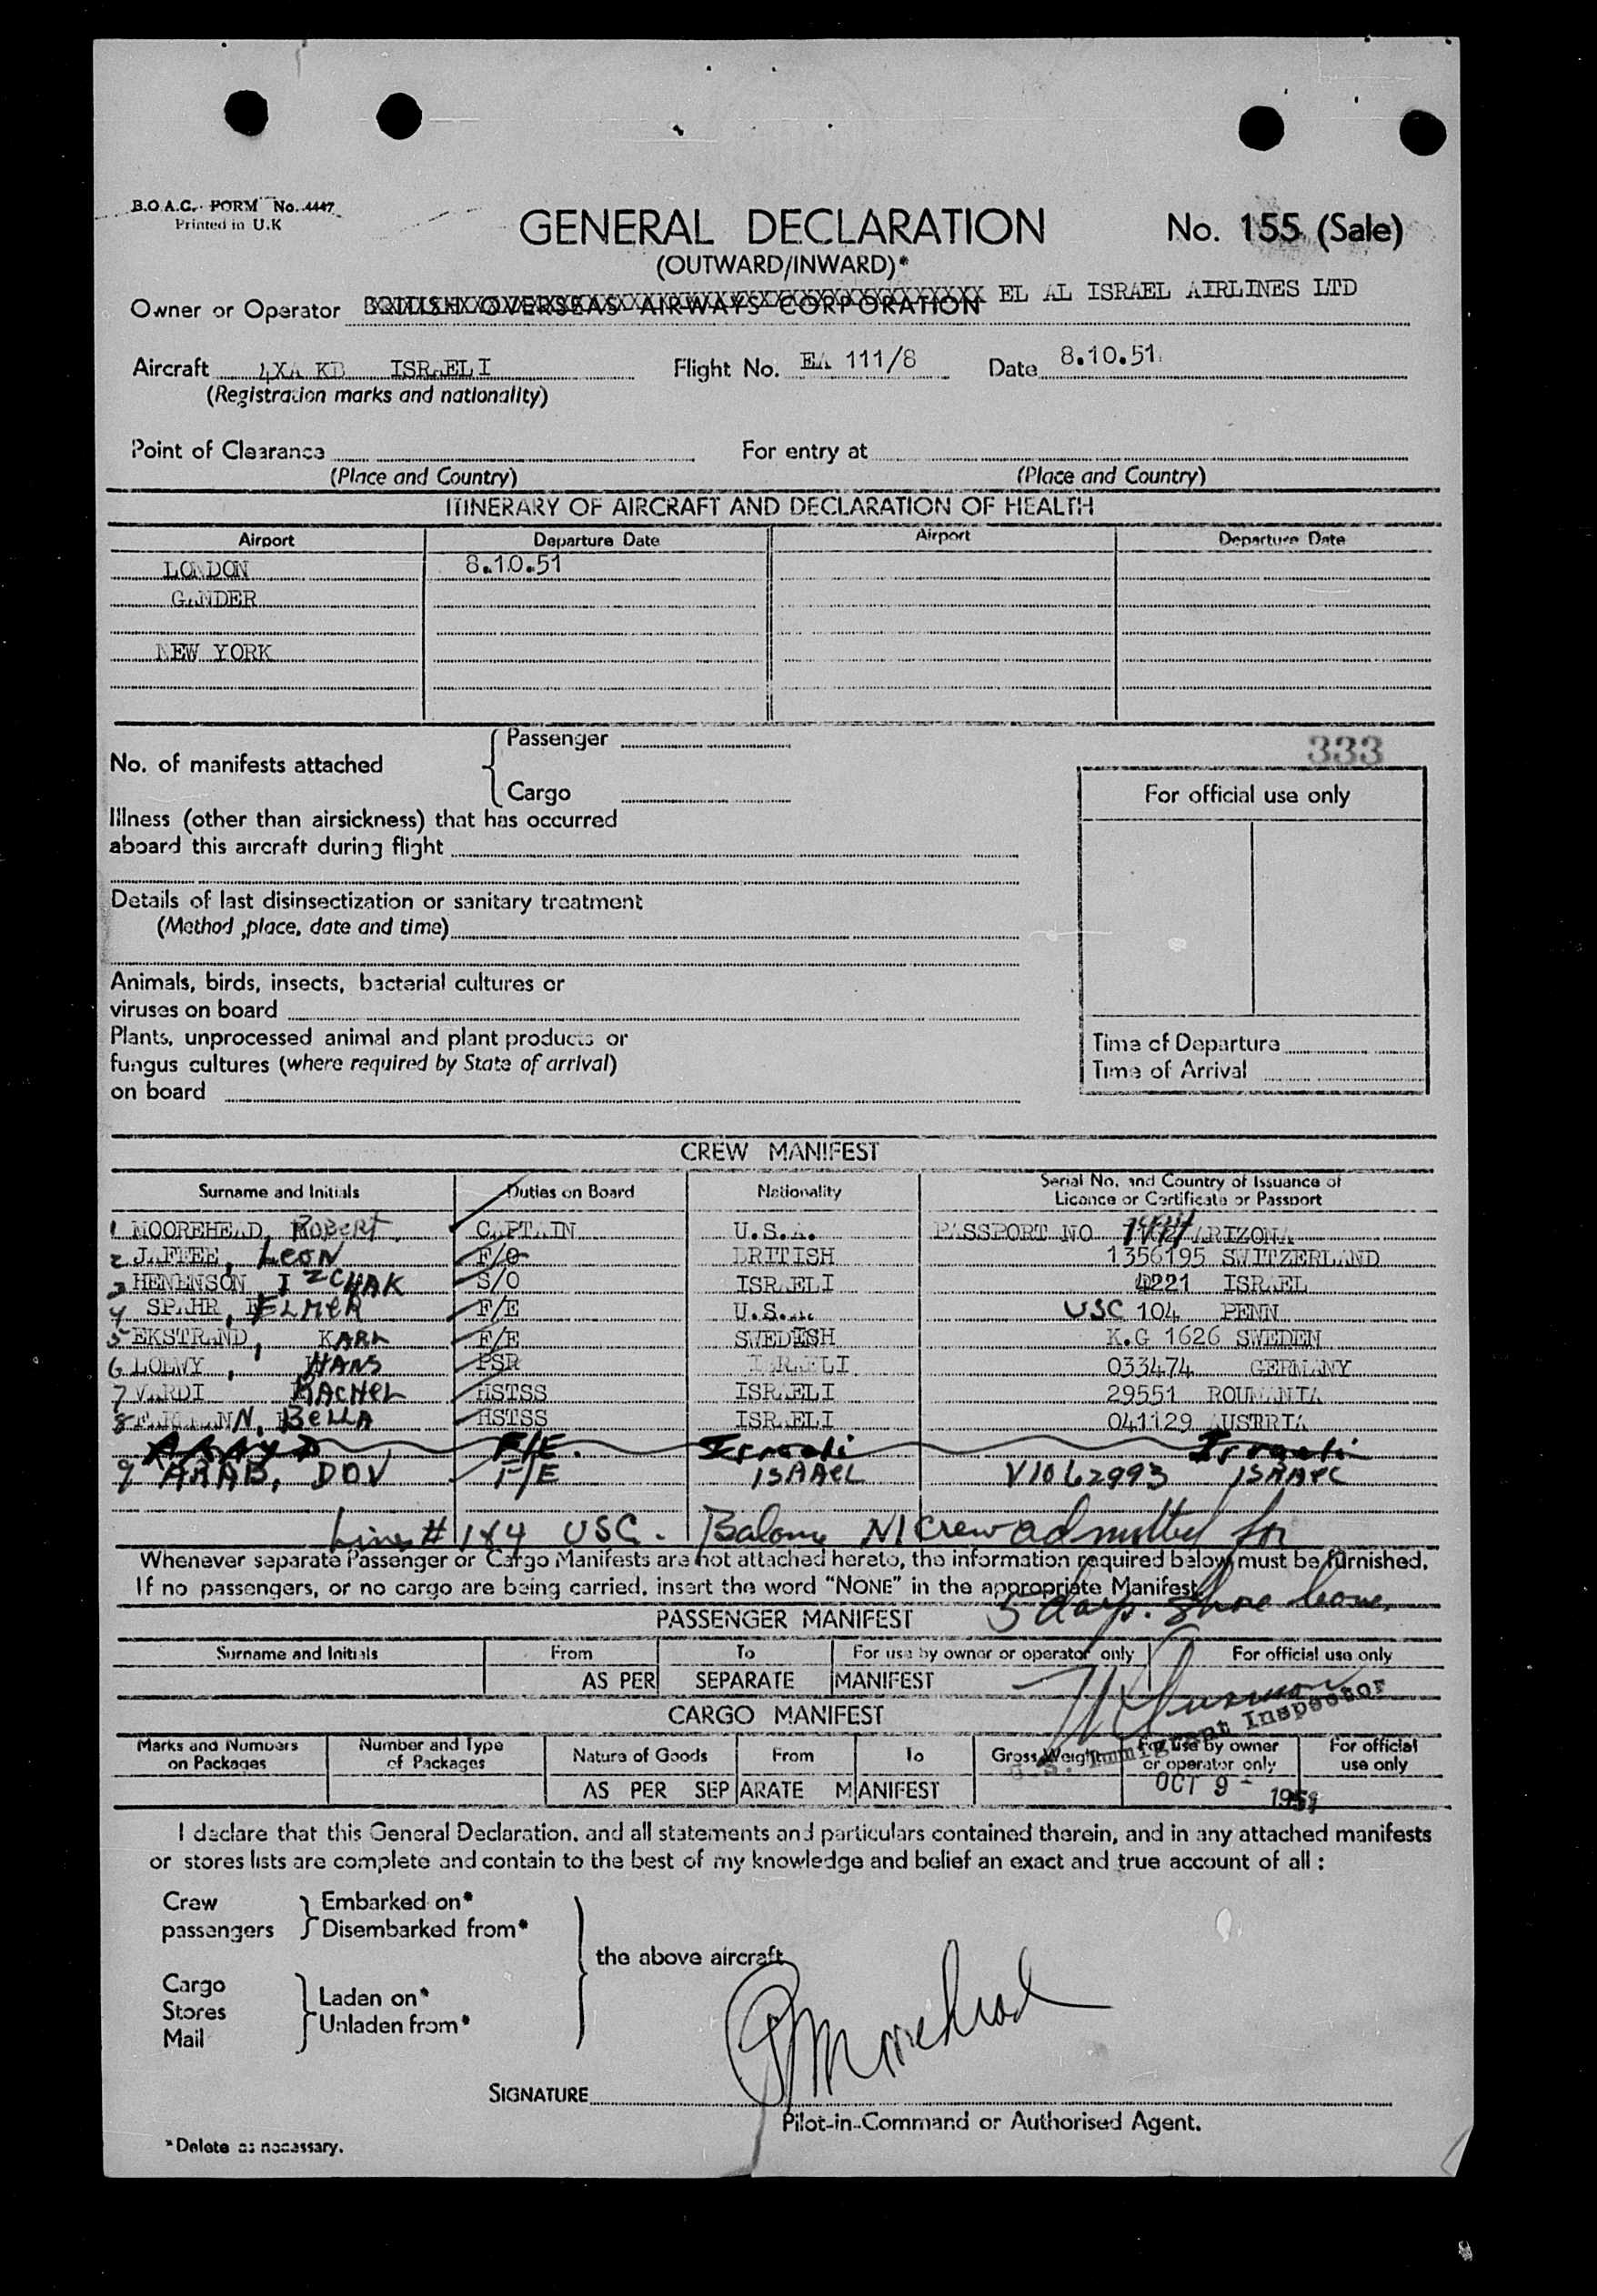 B.O.A.C. FORM No. 4447
Printed in U.K
GENERAL DECLARATION No. 155 (Sale)
(OUTWARD/INWARD)*
Owner or Operator BRITISH OVERSEAS AIRWAYS CORPORATION EL AL ISRAEL AIRLINES LTD
Aircraft 4XA KB ISRAELI Flight No. EA 111/8 Date 8.10.51.
(Registration marks and nationality)
Point of Clearance For entry at
(Place and Country) (Place and Country)
ITINERARY OF AIRCRAFT AND DECLARATION OF HEALTH
Airport Departure Date Airport Departure Date
LONDON 8.10.51
GANDER
NEW YORK
No. of manifests attached { Passenger
Cargo
333
For official use only
Illness (other than airsickness) that has occurred
aboard this aircraft during flight
Details of last disinsectization or sanitary treatment
(Method ,place, date and time)
Animals, birds, insects, bacterial cultures or
viruses on board
Plants, unprocessed animal and plant products or
fungus cultures (where required by State of arrival)
on board
Time of Departure
Time of Arrival
CREW MANIFEST
Surname and Initials Duties on Board Nationality Serial No. and Country of Issuance of
Licence or Certificate or Passport
1 MOOREHEAD, ROBERT. CAPTAIN U.S.A. PASSPORT NO ARIZONA
2 JAFFEE, LEON F/O BRITISH 1356195 SWITZERLAND
3 HENENSON IZCHAK S/O ISRAELI 4221 ISRAEL
4 SPAHR, ELMER F/E U.S.A. USC 104 PENN
5 EKSTRAND, KARL F/E SWEDISH K.G 1626 SWEDEN
6 LOEWY, HANS PSR ISRAELI 033474 GERMANY
7 VARDI RACHEL HSTSS ISRAELI 29551 ROUMANIA
8 BELLA HSTSS ISRAELI 041129 AUSTRIA
F/E. Israeli Israeli
9 ARAB, DOV F/E ISRAEL V1062993 ISRAEL
Line # 1&4 USC. Balance NI Crew admitted for
5 days. Shore leave.
Whenever separate Passenger or Cargo Manifests are not attached hereto, the information required below must be furnished.
If no passengers, or no cargo are being carried, insert the word "NONE" in the appropriate Manifest.
PASSENGER MANIFEST
Surname and Initials From To For use by owner or operator only For official use only
AS PER SEPARATE MANIFEST
U.S. Immigrant Inspector
CARGO MANIFEST
Marks and Numbers on Packages Number and Type of Packages Nature of Goods From To Gross Weight For use by owner or operator only For official use only
AS PER SEPARATE MANIFEST OCT 9 - 1951
I declare that this General Declaration, and all statements and particulars contained therein, and in any attached manifests
or stores lists are complete and contain to the best of my knowledge and belief an exact and true account of all :
Crew
passengers } Embarked on*
Disembarked from*
the above aircraft
Cargo
Stores
Mail } Laden on*
Unladen from*
SIGNATURE Moorehead
Pilot-in-Command or Authorised Agent.
*Delete as necessary.